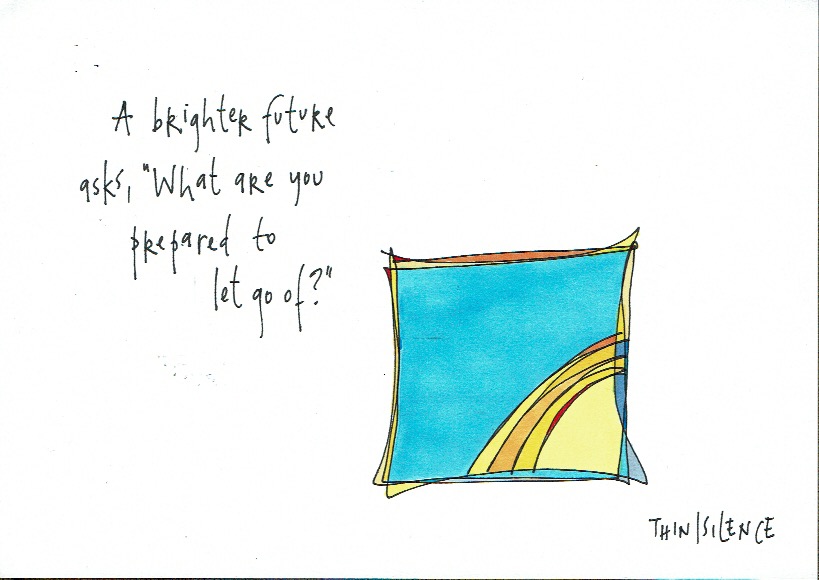 A brighter future
asks, "What are you
prepared to
let go of?"
THIN|SILENCE